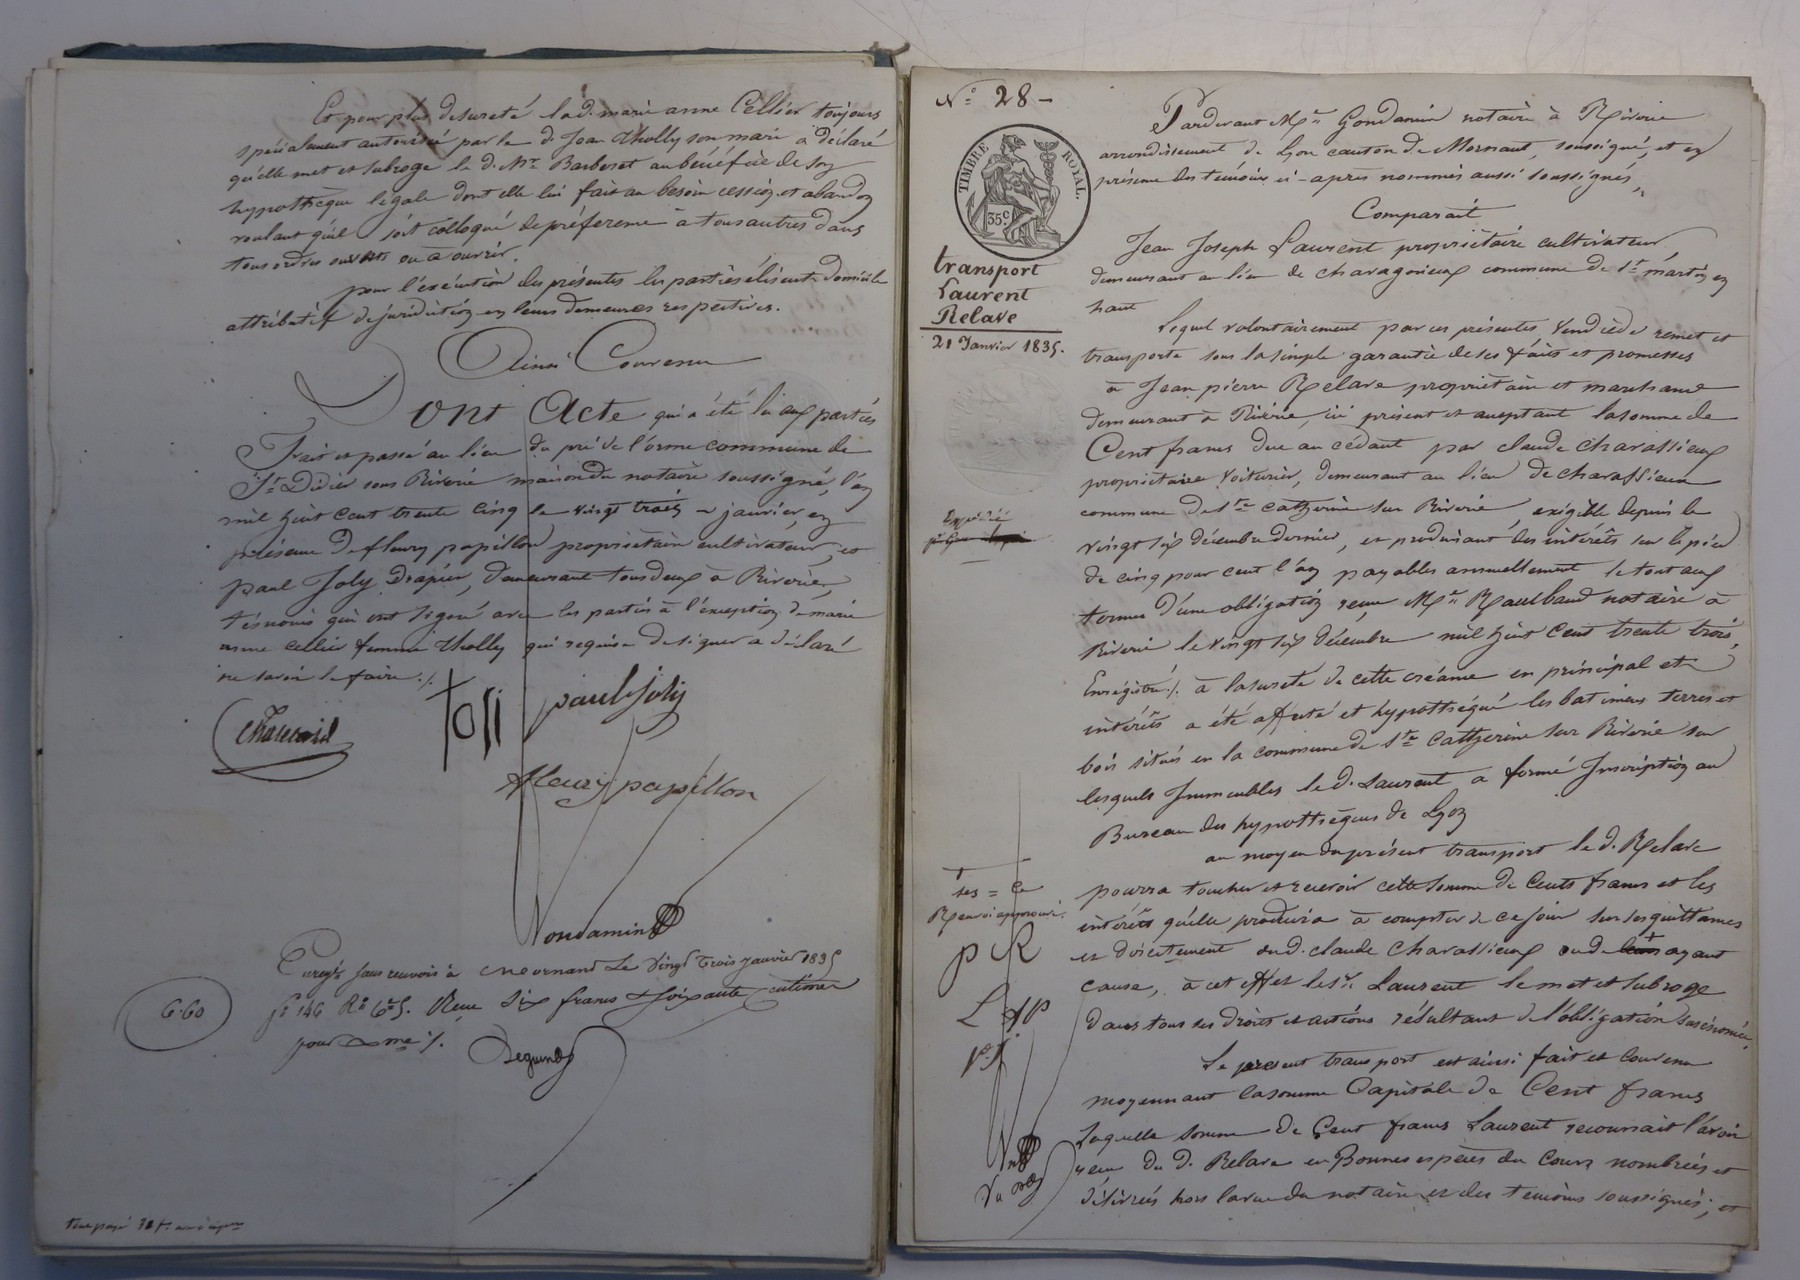 Et pour plus de sureté la d. marie anne Cellier toujours
spécialement autorisée par le d. Jean tholly son mari a déclaré
qu'elle met et subroge le d. Mr. Barberet au bénéfice de son
hypothèque légale dont elle lui fait au besoin cession et abandon
voulant qu'il soit colloqué de préférence à tous autres dans
tous ordres ouverts ou à ouvrir.
pour l'exécution des présentes les parties élisent domicile
attributif de juridiction en leurs demeures respectives.
Ainsi Convenu
Dont Acte qui a été lu aux parties
Fait et passé au lieu du pré de l'orme commune de
St. Didier sous Riverie maison du notaire soussigné, l'an
mil huit cent trente cinq le vingt trois janvier, en
présence de fleury papillon propriétaire cultivateur, et
paul Joly Drapier, demeurant tous deux à Riverie,
témoins qui ont signé avec les parties à l'exception de marie
anne cellier femme tholly qui requise de signer a déclaré
ne savoir le faire ./.
paul joly
fleury papillon
Gondamin
Enregt. sans renvois à Mornand Le Vingt trois janvier 1835
fo. 146 Ro. Reçu Six francs soixante Centimes
6.60
pour ./.
N.o 28 -
TIMBRE ROYAL.
35c
transport
Laurent
Relave
21 Janvier 1835.
Expédié
Pardevant Me. Gondamin notaire à Riverie
arrondissement de Lyon canton de Mornant, soussigné, et en
présence des temoins ci-après nommés aussi soussignés,
Comparait
Jean Joseph Laurent propriétaire cultivateur
demeurant au lieu de commune de St. martin en
haut
Lequel volontairement par ces présentes vend cède remet et
transporte sous la simple garantie de ses faits et promesses
à Jean pierre Relave propriétaire et marchand
demeurant à Riverie, ici présent et acceptant la somme de
Cent francs due au cédant par claude charassieux
propriétaire voiturier, demeurant au lieu de charassieux
commune de Ste. catherine sur Riverie, exigible depuis le
vingt six décembre dernier, et produisant des intérêts sur le pied
de cinq pour cent l'an payables annuellement le tout aux
termes d'une obligation reçue Me. Raulbaud notaire à
Riverie le vingt six décembre mil huit cent trente trois,
Enrégistrée ./. à la sureté de cette créance en principal et
intérêts a été affecté et hypothéqué les batimens terres et
bois situés en la commune de Ste. Catherine sur Riverie sur
lesquels Immeubles le d. Laurent a formé Inscription au
Bureau des hypothèques de Lyon
au moyen du présent transport le d. Relave
pourra toucher et recevoir cette somme de Cents francs et les
intérêts qu'elle produira à compter de ce jour sur ses quittances
et directement du d. claude charassieux ou de ayant
cause, à cet effet le Sr. Laurent le met et subroge
dans tous ses droits et actions résultant de l'obligation susénoncée,
Le présent transport est ainsi fait et convenu
moyennant la somme Capitale de Cent francs
Laquelle somme de Cent francs Laurent reconnait l'avoir
reçue du d. Relave en Bonnes espèces du Cours nombrées et
délivrées hors la vue du notaire et des temoins soussignés, et
ses = ce
Renvoi approuvé.
p R
L
fp
p.J